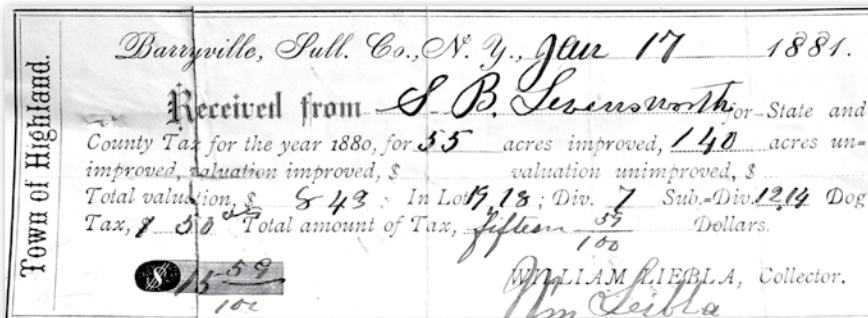 Town of Highland.
Barryville, Sull. Co., N. Y., Jan 17 1881.
Received from S. B. Levensworth for State and
County Tax for the year 1880, for 55 acres improved, 140 acres un-
improved, valuation improved, $ valuation unimproved, $
Total valuation, $ 843 In Lot 19, 18; Div. 7 Sub.-Div. 12, 14 Dog
Tax, $ 50 Total amount of Tax, fifteen 59/100 Dollars.
$ 15 59/100 WILLIAM LIEBLA, Collector.
Wm Leibla